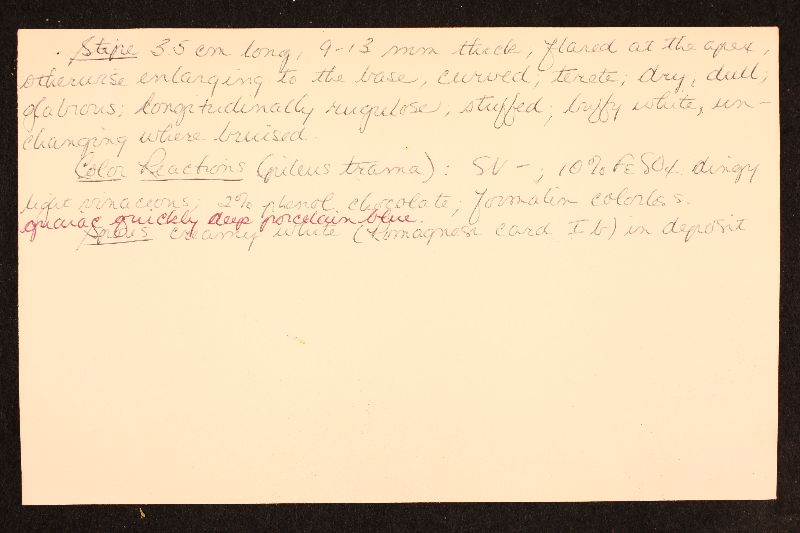 Stipe 3.5 cm long, 9-13 mm thick, flared at the apex,
otherwise enlarging to the base, curved; terete; dry, dull;
glabrous; longitudinally rugulose; stuffed; buffy white, un-
changing where bruised.
Color Reactions (pileus trama): SV -; 10% FeSO4 dingy
light vinaceous; 2% phenol chocolate; formalin colorless.
guaiac quickly deep porcelain blue.
Spores creamy white (Romagnesi card I b) in deposit